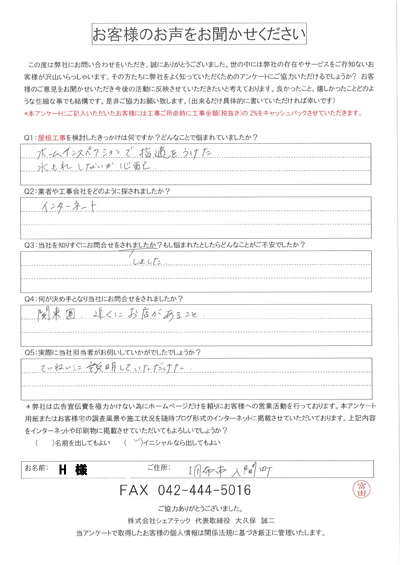 お客様のお声をお聞かせください
この度は弊社にお問い合わせをいただき、誠にありがとうございます。世の中には弊社の存在やサービスをご存知ないお
客様が沢山いらっしゃいます。その方たちに弊社をよく知っていただくためのアンケートにご協力いただけるでしょうか? お客
様のご意見をお聞かせいただき今後の活動に反映させていただきたいと考えております。良かったこと、嬉しかったことどのよ
うな些細な事でも結構です。是非ご協力お願い致します。(出来るだけ具体的に書いていただければ幸いです)
*本アンケートにご記入いただいたお客様には工事ご用命時に工事金額(税抜き)の 2%をキャッシュバックさせていただきます。
Q1:屋根工事を検討したきっかけは何ですか?どんなことで悩まれていましたか?
ホームインスペクションで指適をうけた
水もれしないか心配
Q2:業者や工事会社をどのように探されましたか?
インターネット
Q3:当社を知りすぐにお問合せをされましたか?もし悩まれたとしたらどんなことがご不安でしたか?
しました
Q4:何が決め手となり当社にお問合せをされましたか?
関東圏 近くにお店があること
Q5:実際に当社担当者がお伺いしていかがでしたでしょうか?
ていねいに説明していただけた
*弊社は広告宣伝費を極力かけない為にホームページだけを頼りにお客様への営業活動を行っております。本アンケート
用紙またはお客様宅の調査風景や施工状況を随時ブログ形式のインターネットに掲載させていただいております。上記内容
をインターネットや印刷物に掲載させていただいてもよろしいでしょうか?
( )名前を出してもよい (✓)イニシャルなら出してもよい
お名前: H 様 ご住所: 調布市入間町
FAX 042-444-5016
富田
ご協力ありがとうございました。
株式会社シェアテック 代表取締役 大久保 誠二
当アンケートで取得したお客様の個人情報は関係法規に基づき厳正に管理いたします。